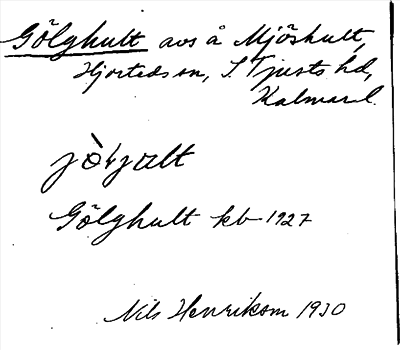 Gölghult avs å Mjöshult,
Hjorteds sn, S Tjusts hd,
Kalmar l.
Gölghult kb 1927
Nils Henrikson 1930